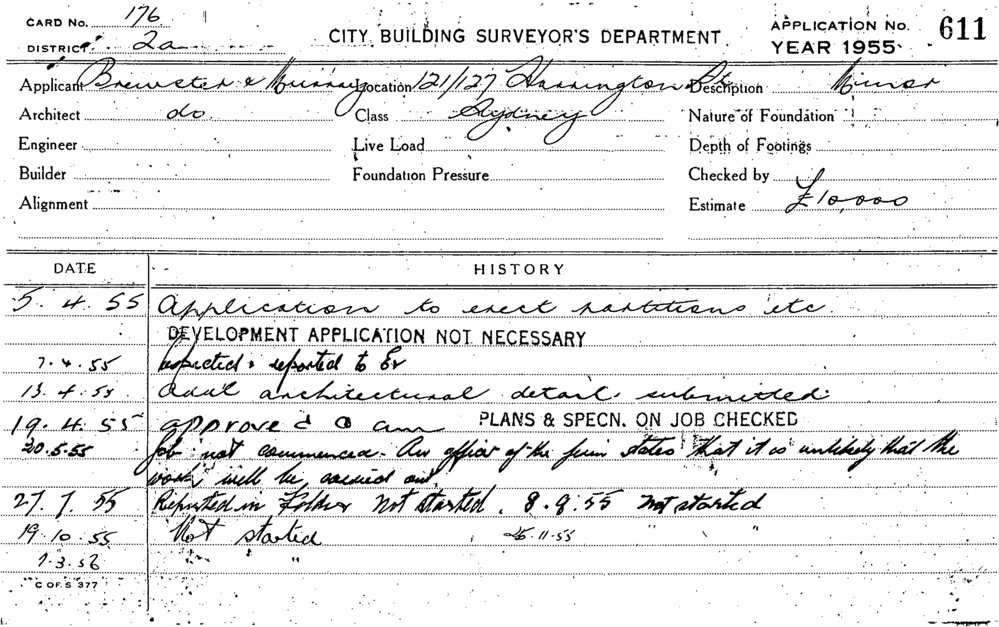 CARD No. 176
DISTRICT. 2a
CITY BUILDING SURVEYOR'S DEPARTMENT
APPLICATION No. 611
YEAR 1955
Applicant Brewster & Murray Location 121/127 Harrington St. Description Minor
Architect do Class Sydney Nature of Foundation
Engineer Live Load Depth of Footings
Builder Foundation Pressure Checked by
Alignment Estimate £10,000
DATE HISTORY
5. 4. 55 Application to erect partitions etc.
DEVELOPMENT APPLICATION NOT NECESSARY
7. 4. 55 Inspected & reported to
13. 4. 55 Addl architectural detail submitted.
19. 4. 55 approved PLANS & SPECN. ON JOB CHECKED
20.5.55 Job not commenced. An officer of the firm states that it is unlikely that the
work will be carried out.
27. 7. 55 Reported in Folder Not Started. 8.9.55 Not started
19.10.55 Not started 25.11.55 " "
7.3.56 " "
C OF S 377